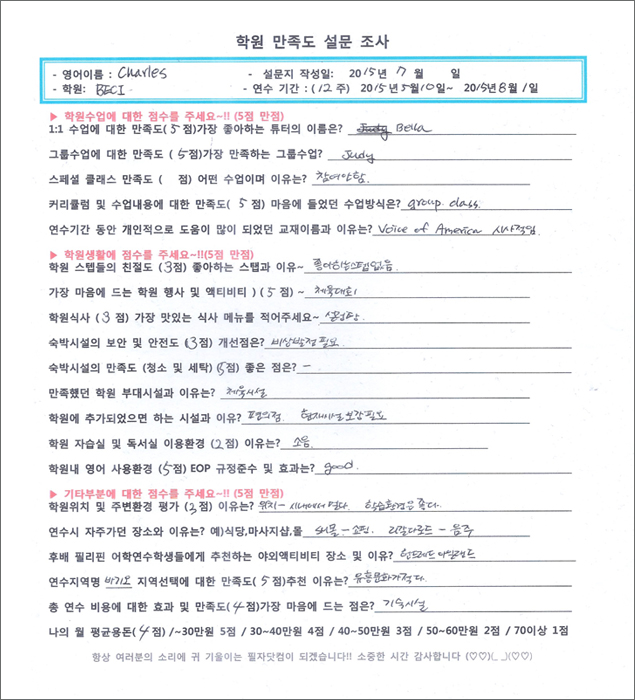 학원 만족도 설문 조사
- 영어이름 : Charles - 설문지 작성일: 2015년 7 월 일
- 학원: BECI. - 연수 기간 : (12 주) 2015년 5월 10일~ 2015년 8월 1일
▶ 학원수업에 대한 점수를 주세요~!! (5점 만점)
1:1 수업에 대한 만족도( 5 점)가장 좋아하는 튜터의 이름은? Judy Bella
그룹수업에 대한 만족도 ( 5점)가장 만족하는 그룹수업? Judy
스페셜 클래스 만족도 ( 점) 어떤 수업이며 이유는? 참여안함.
커리큘럼 및 수업내용에 대한 만족도( 5 점) 마음에 들었던 수업방식은? group class.
연수기간 동안 개인적으로 도움이 많이 되었던 교재이름과 이유는? Voice of America 시사적임
▶ 학원생활에 점수를 주세요~!!(5점 만점)
학원 스텝들의 친절도 (3점) 좋아하는 스탭과 이유~ 좋아하는스텝없음.
가장 마음에 드는 학원 행사 및 액티비티 ) ( 5 점) ~ 체육대회
학원식사 (3 점) 가장 맛있는 식사 메뉴를 적어주세요~ 설렁탕
숙박시설의 보안 및 안전도 (3점) 개선점은? 비상발전필요.
숙박시설의 만족도 (청소 및 세탁) (5점) 좋은 점은? -
만족했던 학원 부대시설과 이유는? 체육시설
학원에 추가되었으면 하는 시설과 이유? 편의점. 현재시설 보강필요
학원 자습실 및 독서실 이용환경 (2점) 이유는? 소음.
학원내 영어 사용환경 (5점) EOP 규정준수 및 효과는? good.
▶ 기타부분에 대한 점수를 주세요~!! (5점 만점)
학원위치 및 주변환경 평가 (3점) 이유는? 위치- 시내에서 멀다. 학습환경은 좋다.
연수시 자주가던 장소와 이유는? 예)식당,마사지샵,몰 SM몰 - 쇼핑. - 음주
후배 필리핀 어학연수학생들에게 추천하는 야외액티비티 장소 및 이유? 헌드레드 아일랜드
연수지역명 바기오 지역선택에 대한 만족도( 5 점)추천 이유는? 유흥문화가적다.
총 연수 비용에 대한 효과 및 만족도(4점)가장 마음에 드는 점은? 기숙시설
나의 월 평균용돈(4 점) /~30만원 5점 / 30~40만원 4점 / 40~50만원 3점 / 50~60만원 2점 / 70이상 1점
항상 여러분의 소리에 귀 기울이는 필자닷컴이 되겠습니다!! 소중한 시간 감사합니다 (♡♡)(_ _)(♡♡)